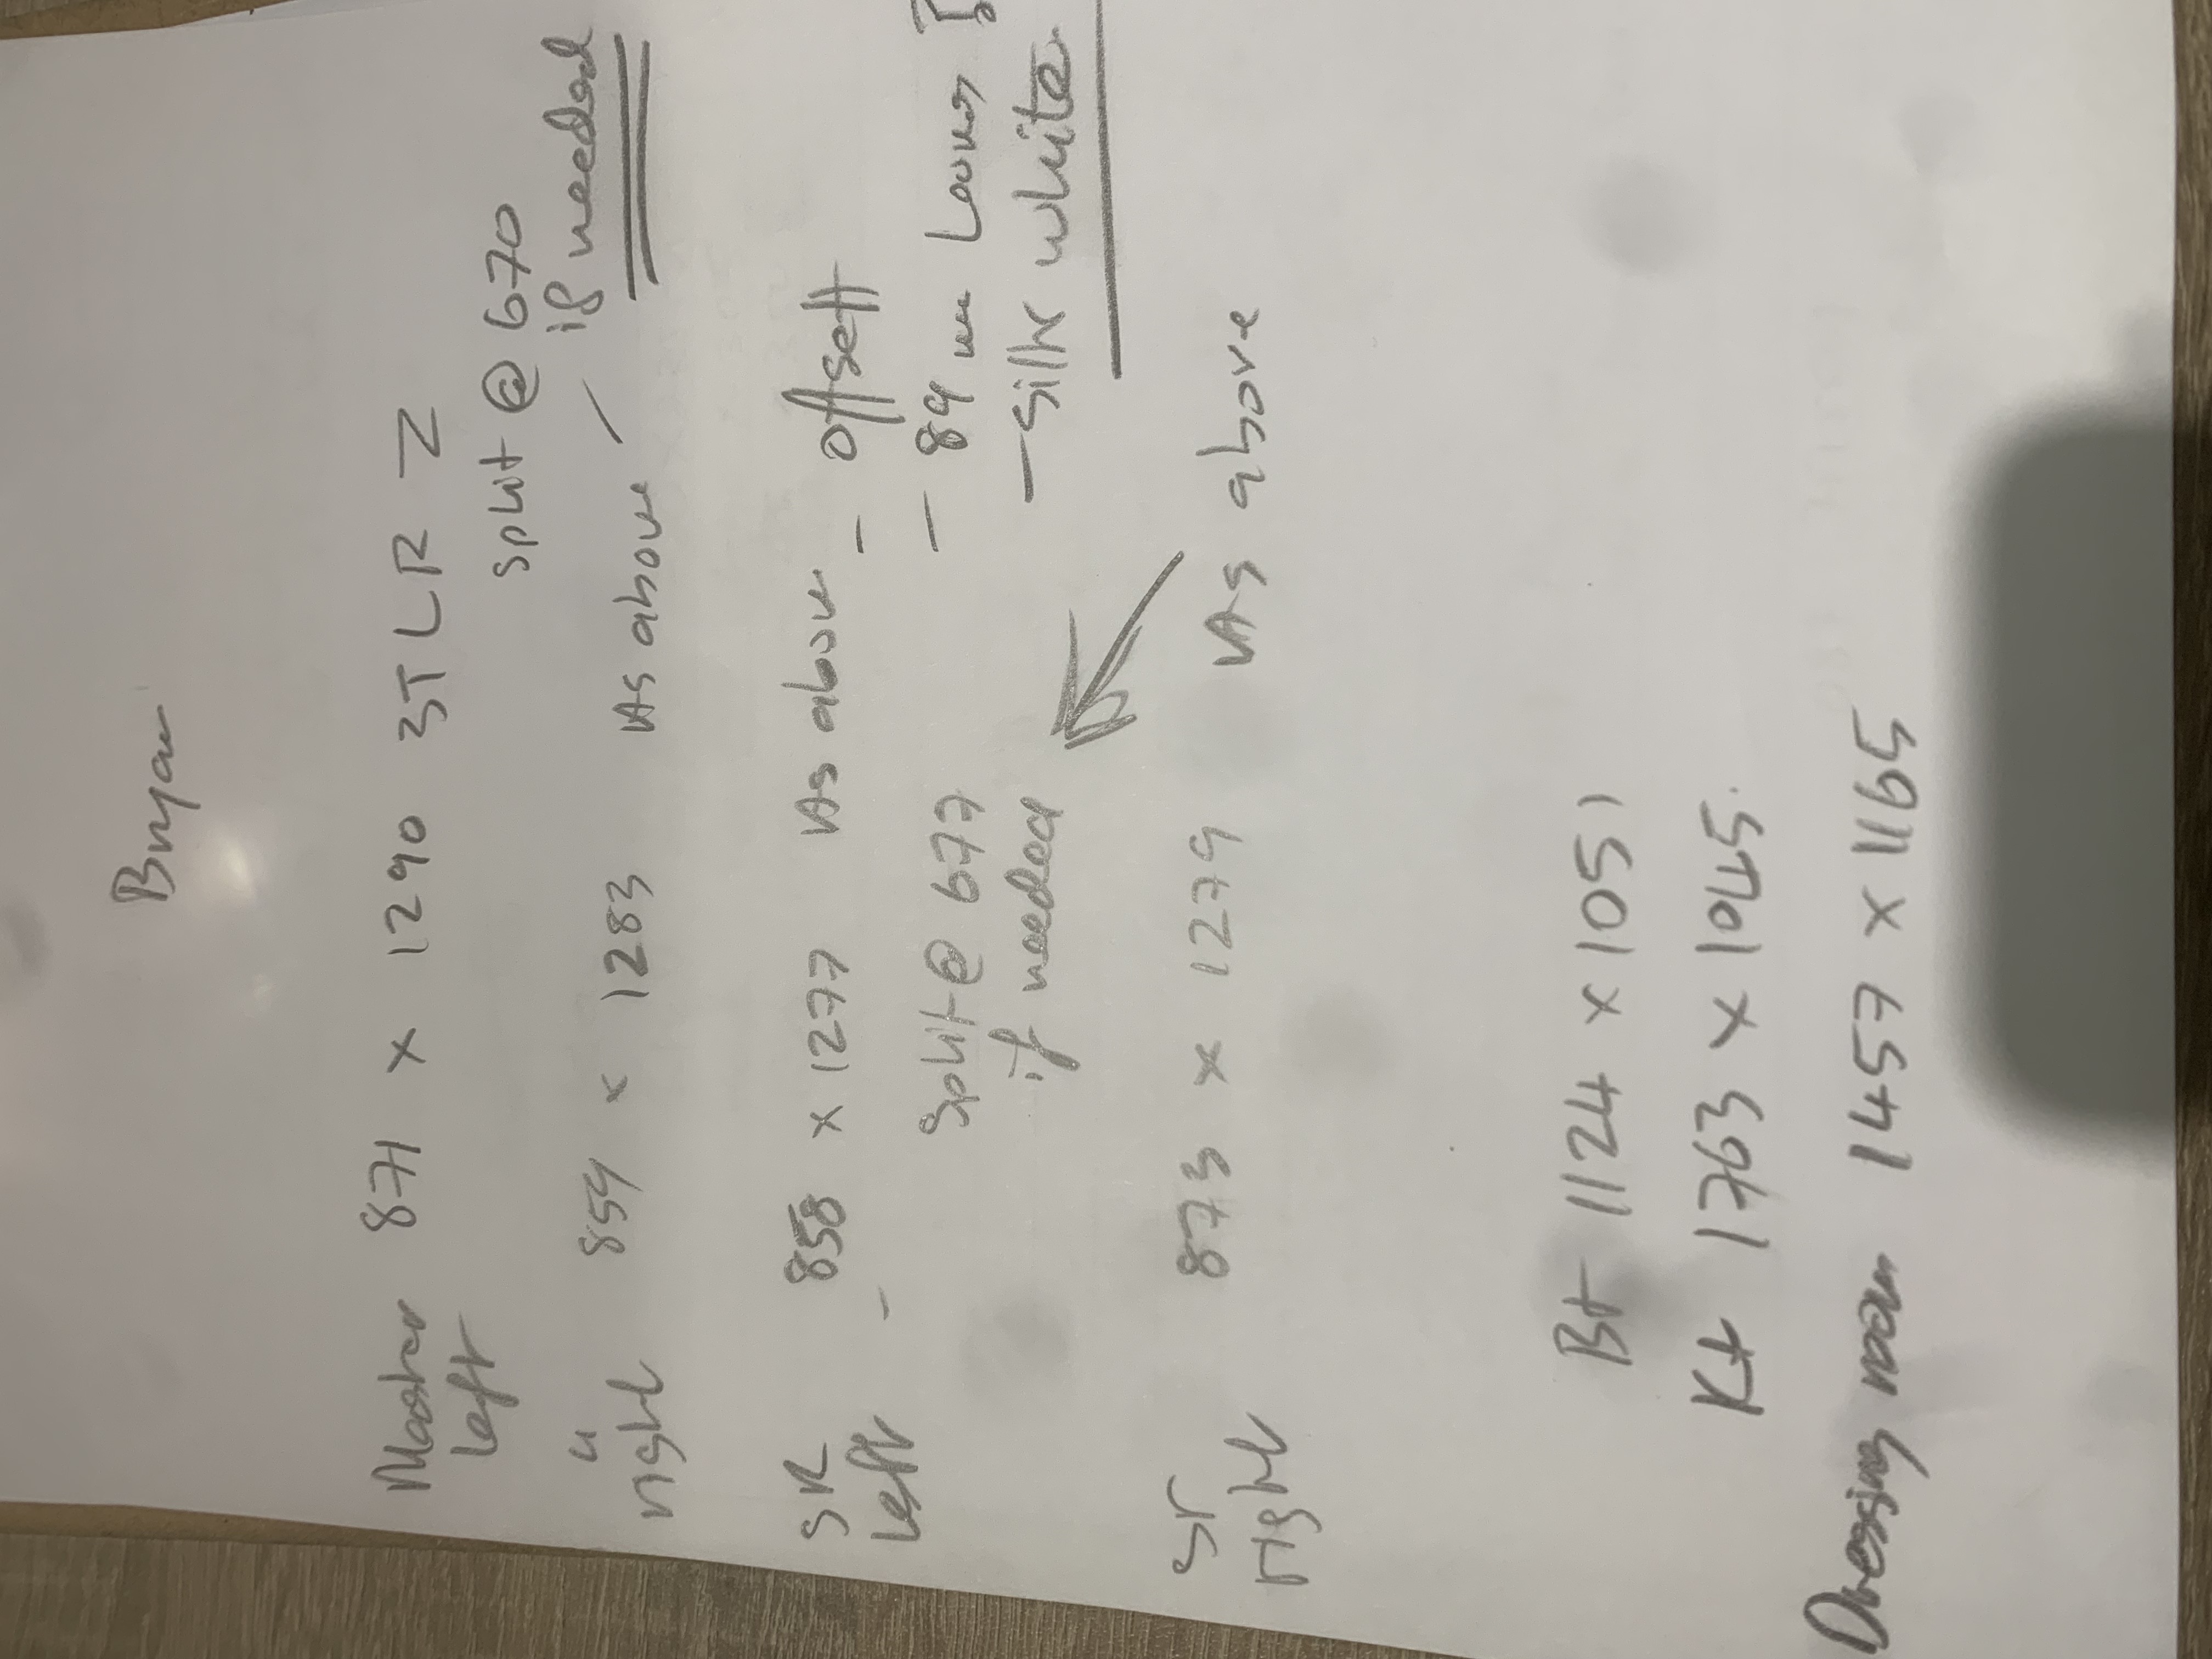 Bryan
Master 871 x 1290 3TLR Z
left split @ 670
" 854 x 1283 As above / if needed
right
SR 858 x 1277 As above - offsett
left - - 89 m Louvs
Split @ 677 - Silk white
if needed
Sr 873 x 1279 As above
right
Bt 1124 x 1051
Kt 1763 x 1045.
Dressing room 1457 x 1165